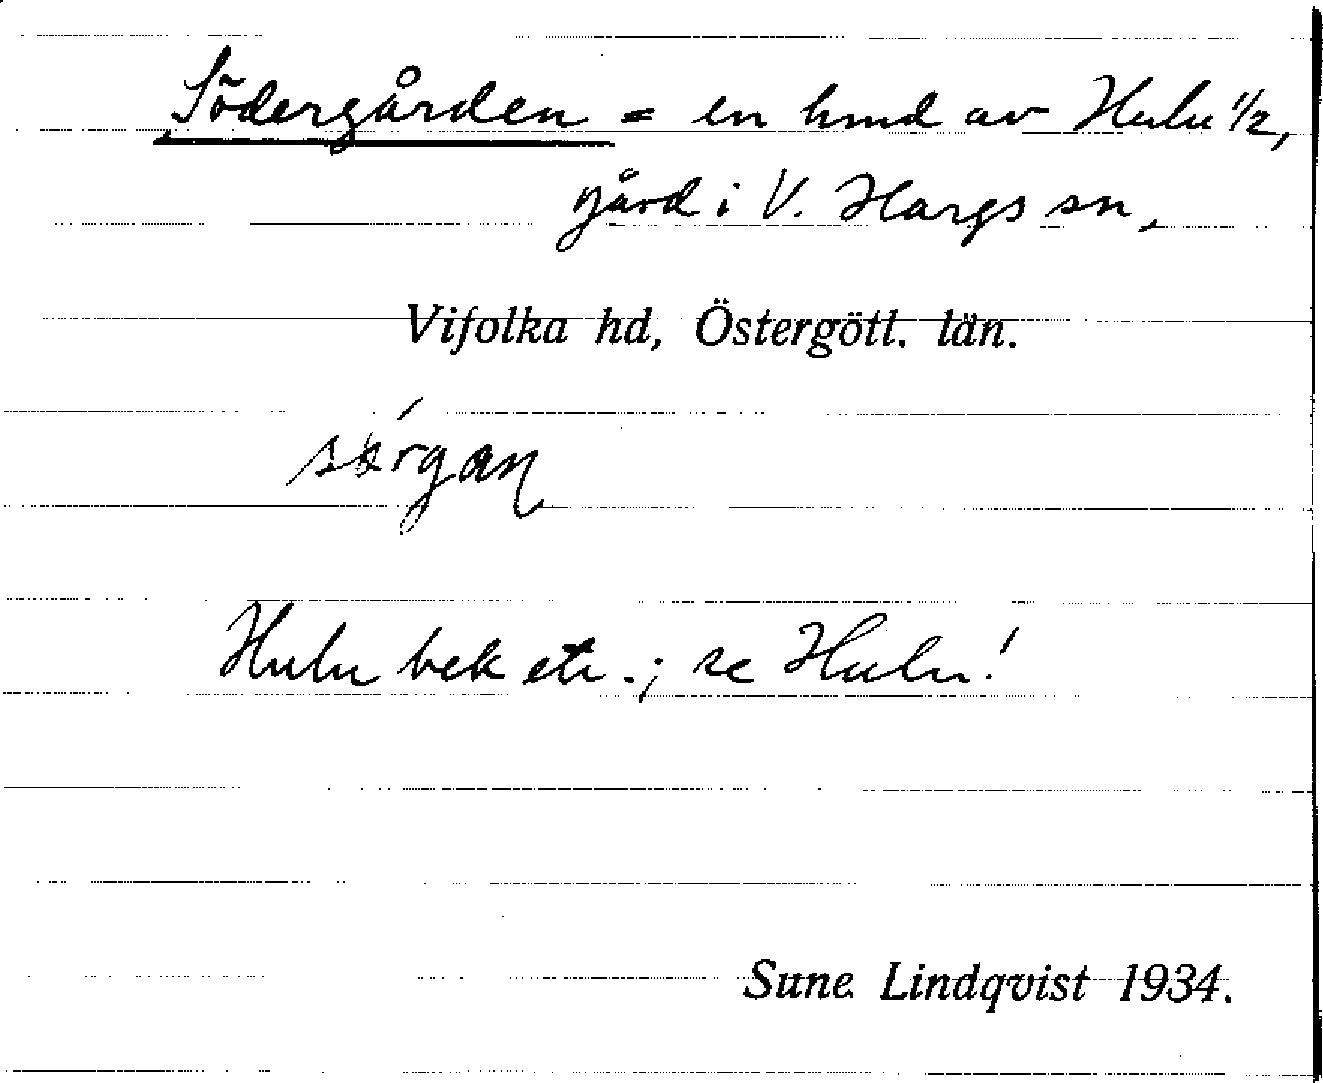 Södergården = en hmd av Hulu 1/2,
gård i V. Hargs sn,
Vifolka hd, Östergötl. län.
Hulu bek etc.; se Hulu!
Sune Lindqvist 1934.